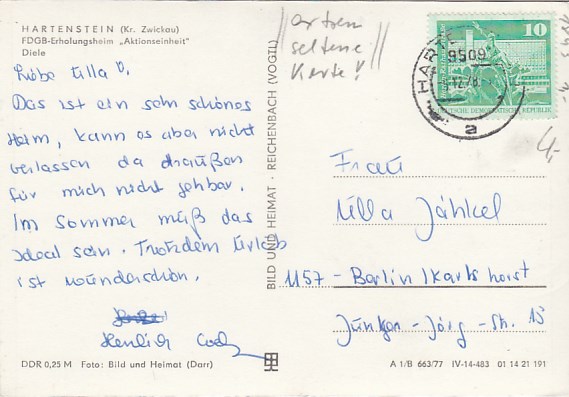 HARTENSTEIN (Kr. Zwickau)
FDGB-Erholungsheim „Aktionseinheit"
Diele
Liebe Ulla!
Das ist ein sehr schönes
Heim, kann es aber nicht
verlassen da draußen
für mich nicht gehbar.
Im Sommer muß das
ideal sein. Trotzdem Urlaub
ist wunderschön.
Herzlich
DDR 0,25 M Foto: Bild und Heimat (Darr)
BILD UND HEIMAT · REICHENBACH (VOGTL)
seltene
Karte!
10
DEUTSCHE DEMOKRATISCHE REPUBLIK
9509
a
4,-
Frau
Ulla Jähkel
1157 - Berlin/Karlshorst
Junker-Jörg-Str. 13
A 1/B 663/77 IV-14-483 01 14 21 191